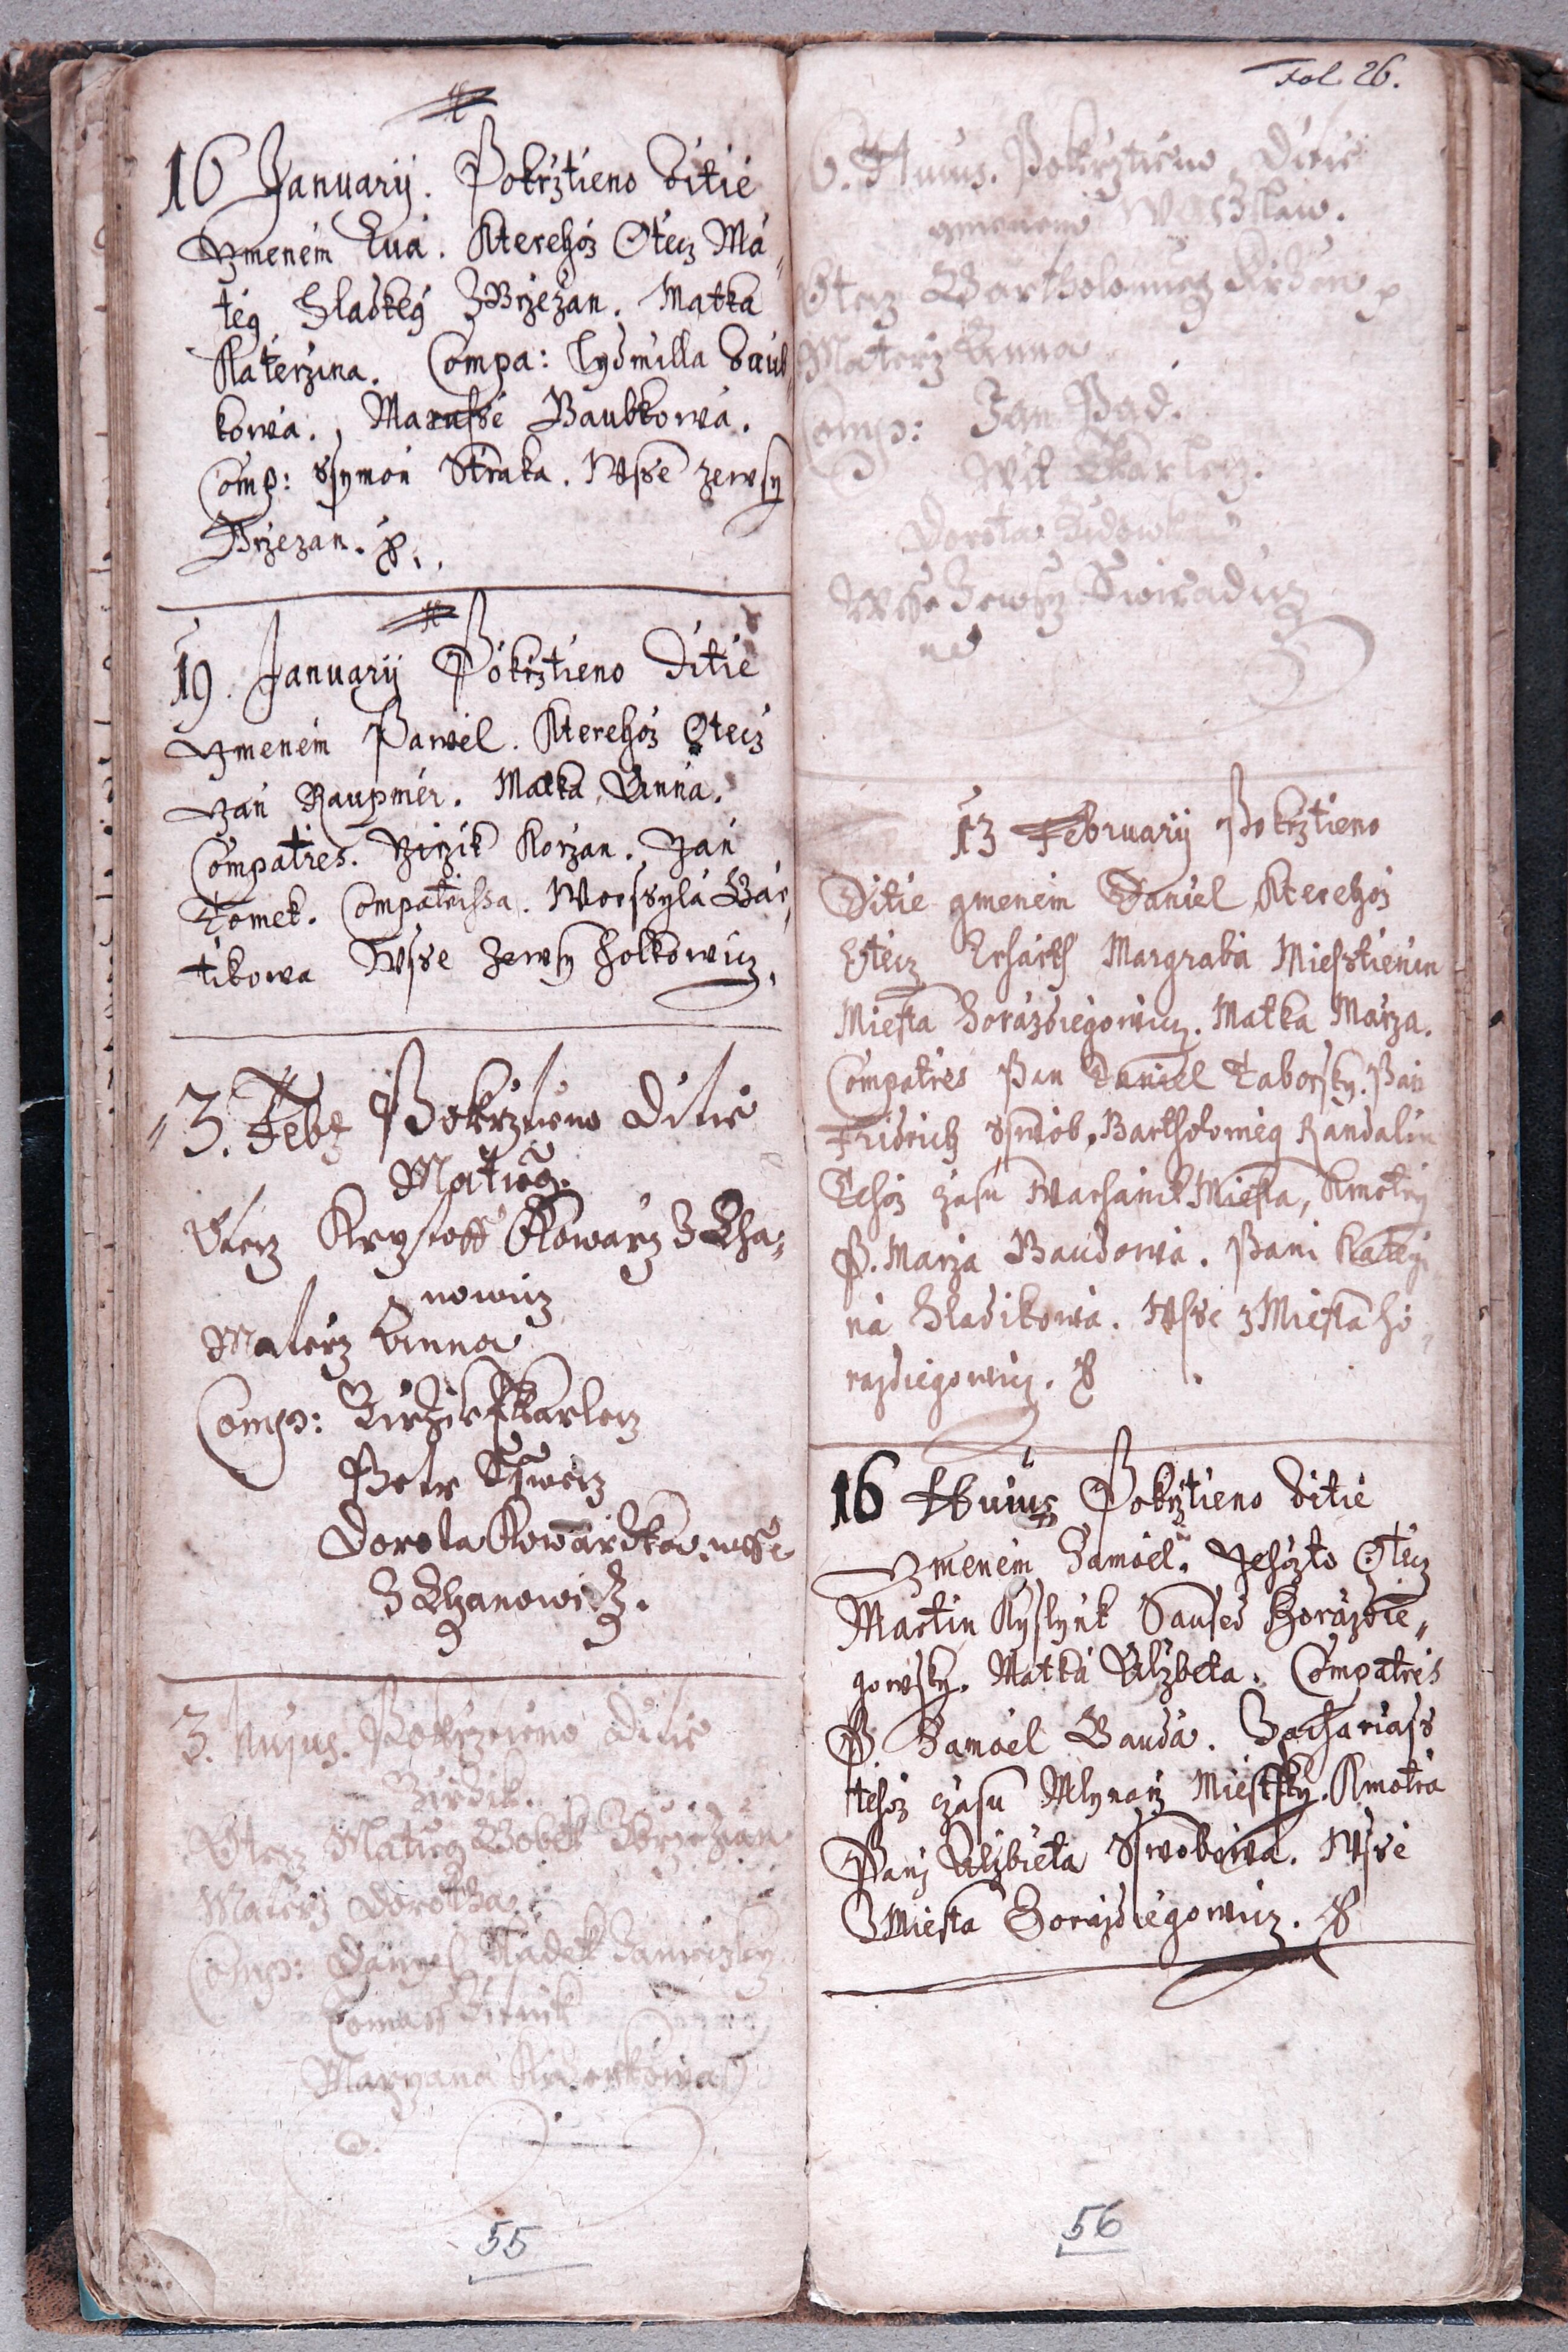 16 Januarij. Pokrztieno ditie
Gmenem Eua. Kterehoz Otecz Ma„
teg Hladkey Z Brzezan. Matka
Katerzina. Compa: Lydmilla Daub
kowa., Marusse Baubkowa.
Comp: Ssymon Straka. Wsse zewsy
Brzezan.
19. Januarij Pokrztieno ditie
Gmenem Pawel. Kterehoz Otecz
Jan Raupmer. Matka Anna.
Compatres. Girzik Korzan. Jan
Tomek. Compatrissa. Worssyla Bar„
tikowa Wsse zewsy Holkowicz.
3. Feb Pokrztieno Ditie
Matieg.
Otecz Krystoff Kowarz Z Cha„
nowicz
Materz Anna
Comp: Girzik Karlecz
Petr Sswecz
Dorota Kowarzka. wsse
Z Chanowicz.
3. hujus. Pokrztieno Ditie
Girzik.
Otecz Matieg Bobek Z Brzezan
Materz Dorotha
Comp: Danyel Radek
Tomass
Maryana
Fol 26.
6. Huius. Pokrztieno Ditie
gmenem Waczlaw.
Otecz Bartholomieg
Materz Anna
Comp: Jan Pad.
Wit Karlecz.
Dorota Zidowka
Wsse zewsy Swiradicz
13 February Pokrztieno
Ditie gmenem Daniel Kterehoz
Otecz Erharth Margraba Miesstienin
Miesta Horazdiegowicz. Matka Marza.
Compatres Pan Daniel Taborsky. Pan
Fridrich Sswob, Bartholomieg Randalin
Tehoz czasu Warhanik Miesta, Kmotry
P. Marza Baudowa. Pani Katerzi
na Hladikowa. Wsse z Miesta Ho„
razdiegowicz.
16 Huius Pokrztieno ditie
Gmenem Samoel. Jehozto Otecz
Martin Kyslynk Saused Horazdie„
gowsky. Matka Alzbeta. Compatres
P. Samoel Bauda. Zachariass
tehoz czasu Mlynarz Miestsky. Kmotra
Pani Alzbieta Sswobowa. Wsse
Z Miesta Horazdiegowicz.
55
56